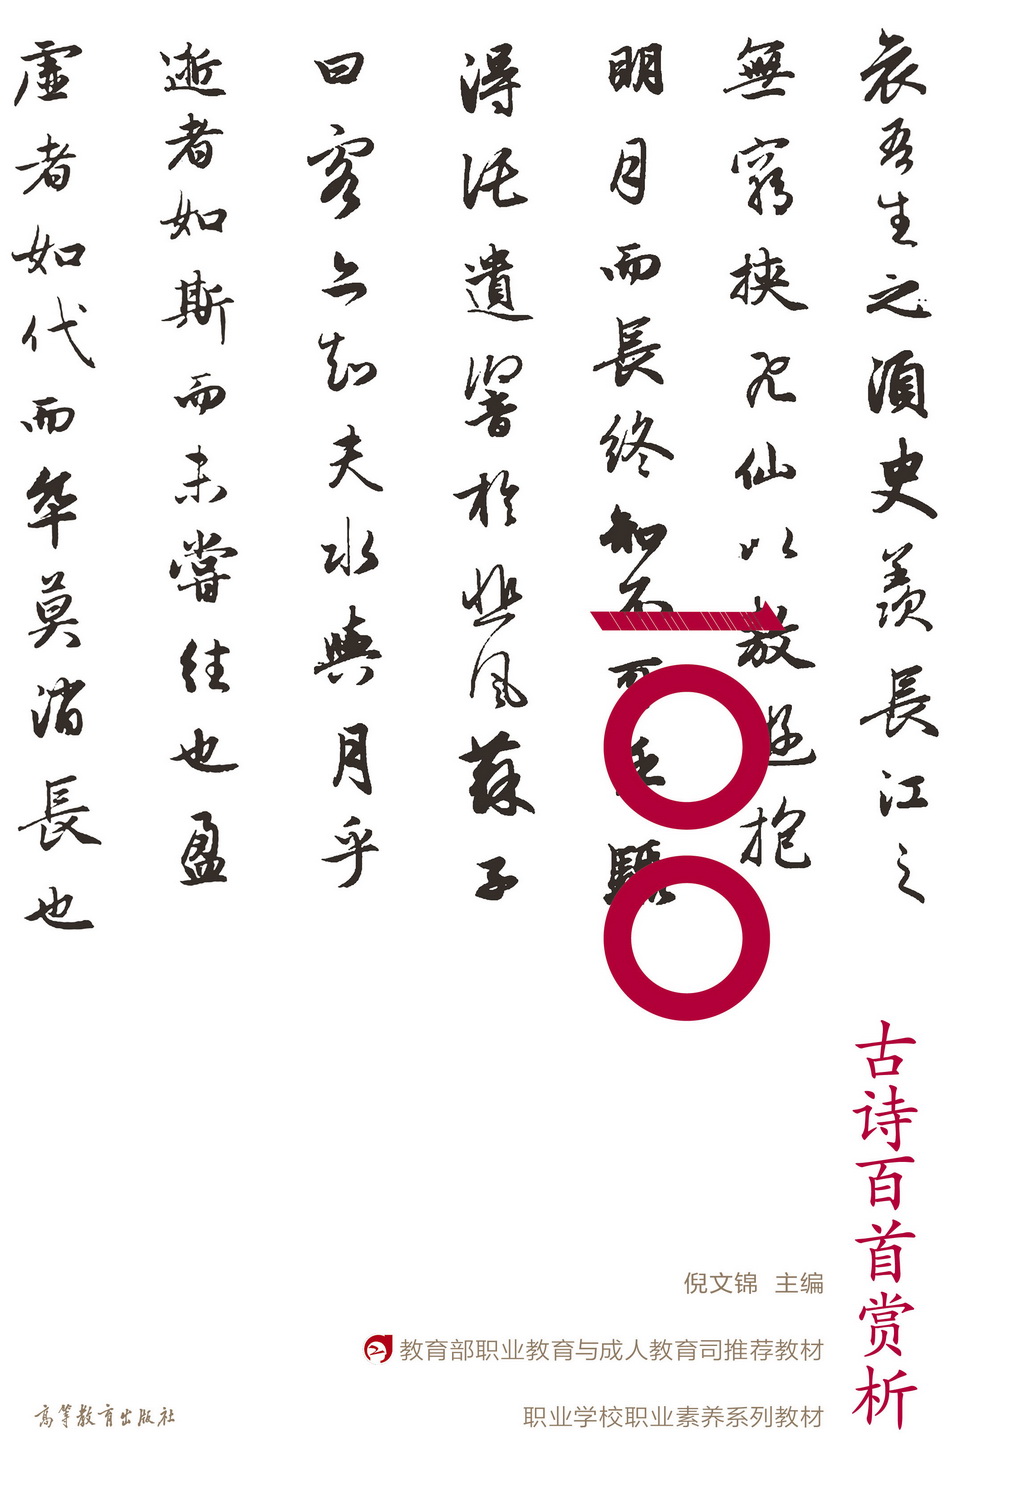 哀吾生之須臾羨長江之
無窮挾飛仙以遨遊抱
明月而長終知不可乎驟
得託遺響於悲風蘇子
曰客亦知夫水與月乎
逝者如斯而未嘗往也盈
虛者如代而卒莫消長也
100
古诗百首赏析
倪文锦 主编
教育部职业教育与成人教育司推荐教材
职业学校职业素养系列教材
高等教育出版社